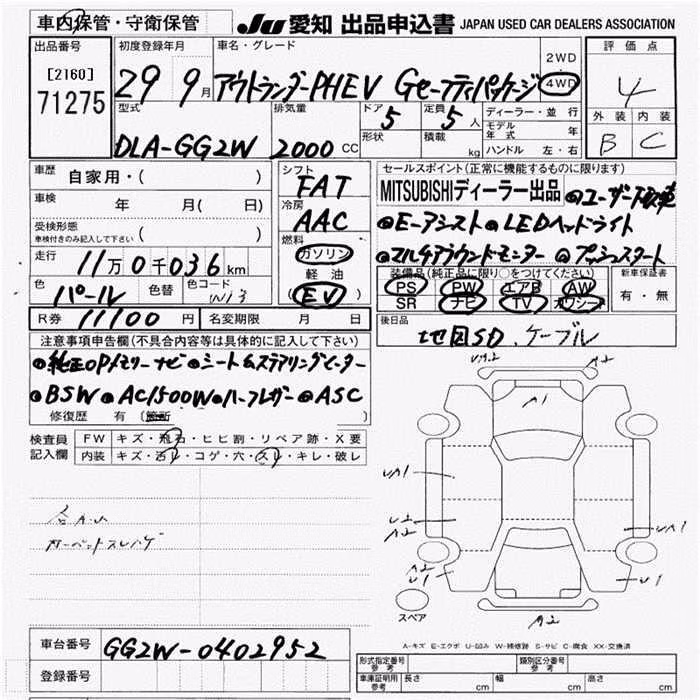 車内保管・守衛保管
JU 愛知 出品申込書 JAPAN USED CAR DEALERS ASSOCIATION
出品番号 初度登録年月 車名・グレード 評価点
[2160]
71275
29 9月 アウトランダーPHEV Gセーフティパッケージ 2WD 4WD 4
型式 排気量 ドア 5 定員 5人 ディーラー・並行 外装 内装
DLA-GG2W 2000 CC 形状 積載 kg モデル年式 年 B C
ハンドル 左・右
車歴 自家用・( )
シフト FAT
セールスポイント(正常に機能するものに限ります)
MITSUBISHIディーラー出品 ◎ユーザー買取車
車検 年 月( 日)
冷房 AAC
◎E-アシスト ◎LEDヘッドライト
受検形態
車検付きのみ記入して下さい ( )
燃料 ガソリン
軽油
(EV)
◎マルチアラウンドモニター ◎プッシュスタート
走行 11万0千036km
装備品(純正品に限り○をつけてください) 新車保証書
PS PW エアB AW 有・無
SR ナビ TV カワシート
色 パール 色替 色コード W13
R券 11100円 名変期限 月 日
後日品 地図SD、ケーブル
注意事項申告欄(不具合内容等は具体的に記入して下さい)
◎純正OPメモリーナビ ◎シート&ステアリングヒーター
◎BSW ◎AC1500W ◎ハーフレザー ◎ASC
修復歴 有 (箇所
検査員記入欄 FW キズ・飛石・ヒビ割・リペア跡・X要
内装 キズ・汚レ・コゲ・穴・スレ・キレ・破レ
カーペットスレハゲ
A2
A1
UA1
U2
A2
UA1
A2
U1
U1
スペア
A2
車台番号 GG2W-0402952
登録番号
A-キズ E-エクボ U-凹み W-補修跡 S-サビ C-腐食 XX-交換済
形式指定番号 参考 類別区分番号 参考
車庫証明用 参考 長さ cm 幅 cm 高さ cm